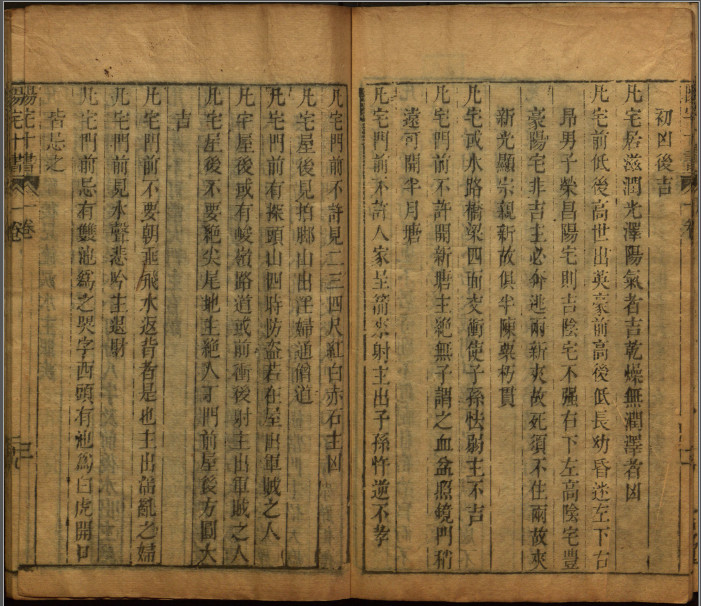 初凶後吉
凡宅居滋潤光澤陽氣者吉乾燥無潤澤者凶
凡宅前低後高世出英豪前高後低長幼昏迷左下右
昂男子榮昌陽宅則吉陰宅不强右下左高陰宅豐
豪陽宅非吉主必奔逃兩新夾故死須不住兩故夾
新光顯宗親新故俱半陳粟朽貫
凡宅或水路橋梁四面交衝使子孫怯弱主不吉
凡宅門前不許開新塘主絶無子謂之血盆照鏡門稍
遠可開半月塘
凡宅門前不許人家呈箭來射主出子孫忤逆不孝
凡宅門前不許見二三四尺紅白赤石主凶
凡宅屋後見拍腳山出淫婦通僧道
凡宅門前有探頭山四時防盜若在屋出軍賊之人
凡宅屋後或有峻嶺路道或前衝後射主出軍賊之人
凡宅屋後不要絶尖尾地主絶人丁門前屋後方圓大
吉
凡宅門前不要朝垂飛水返背者是也主出淫亂之婦
凡宅門前見水聲悲吟主退財
凡宅門前忌有雙池爲之哭字西頭有池爲白虎開口
皆忌之
陽宅十書
一卷
三